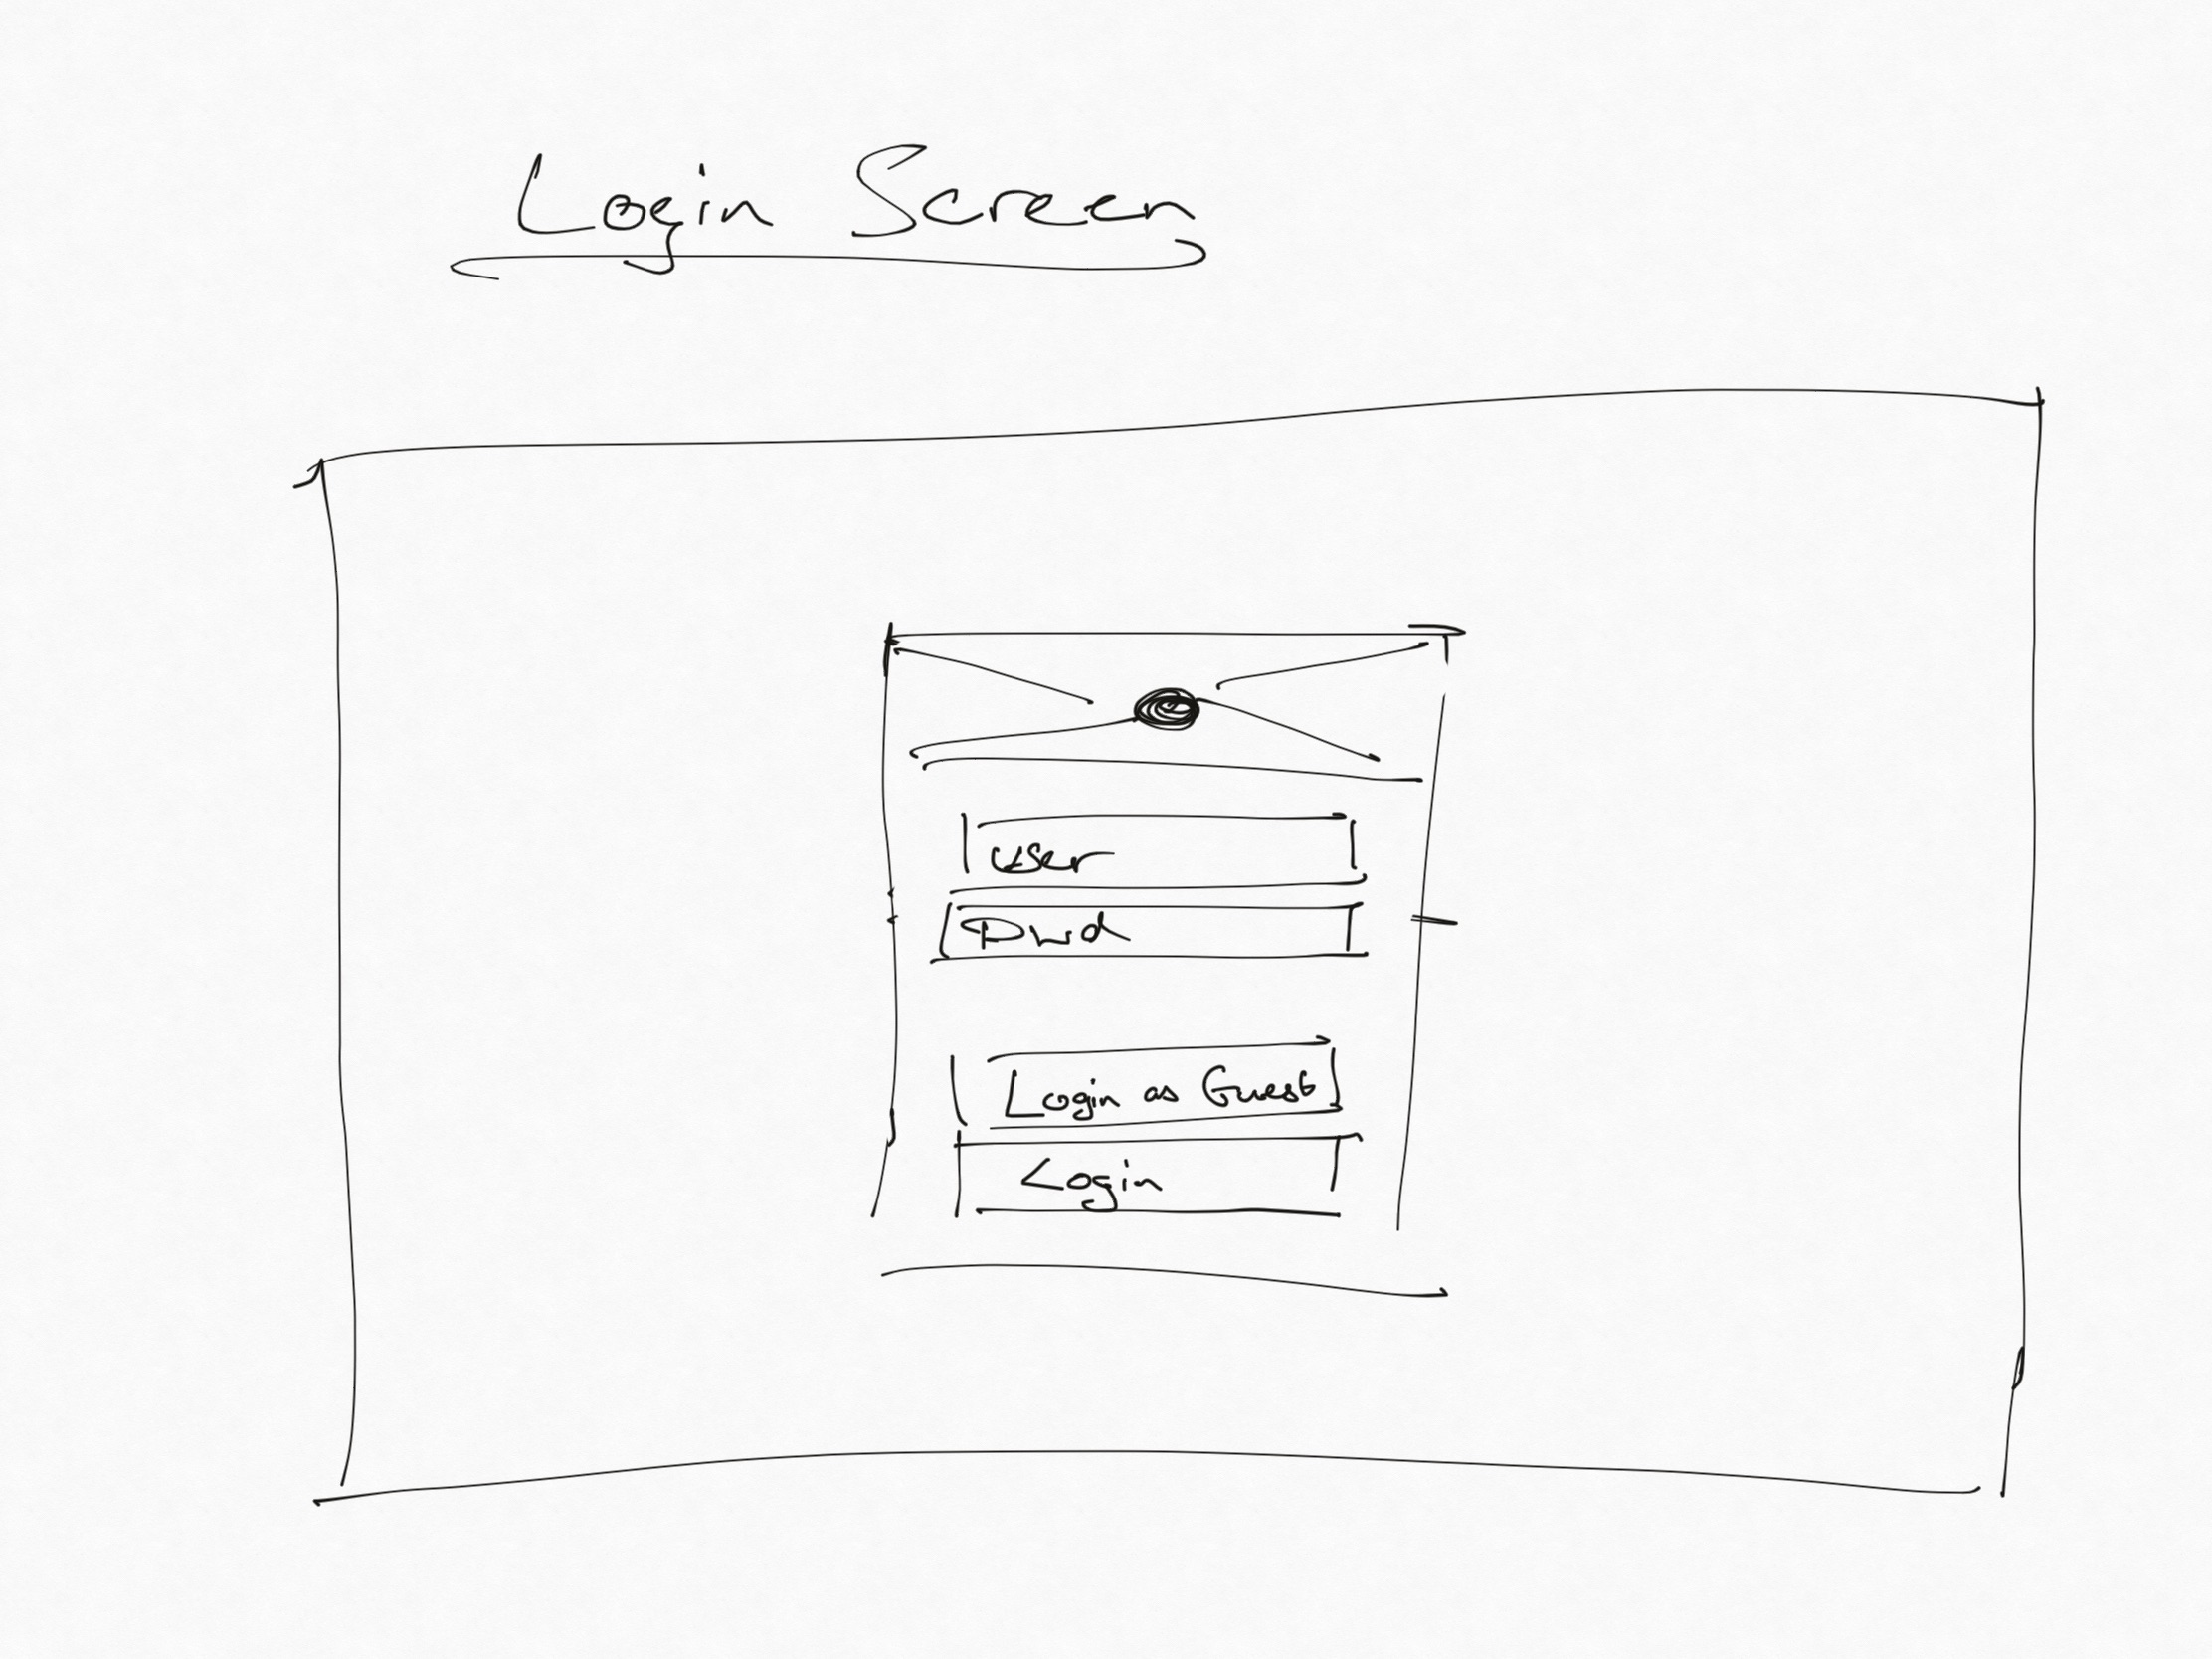 Login Screen
User
Pwd
Login as Guest
Login